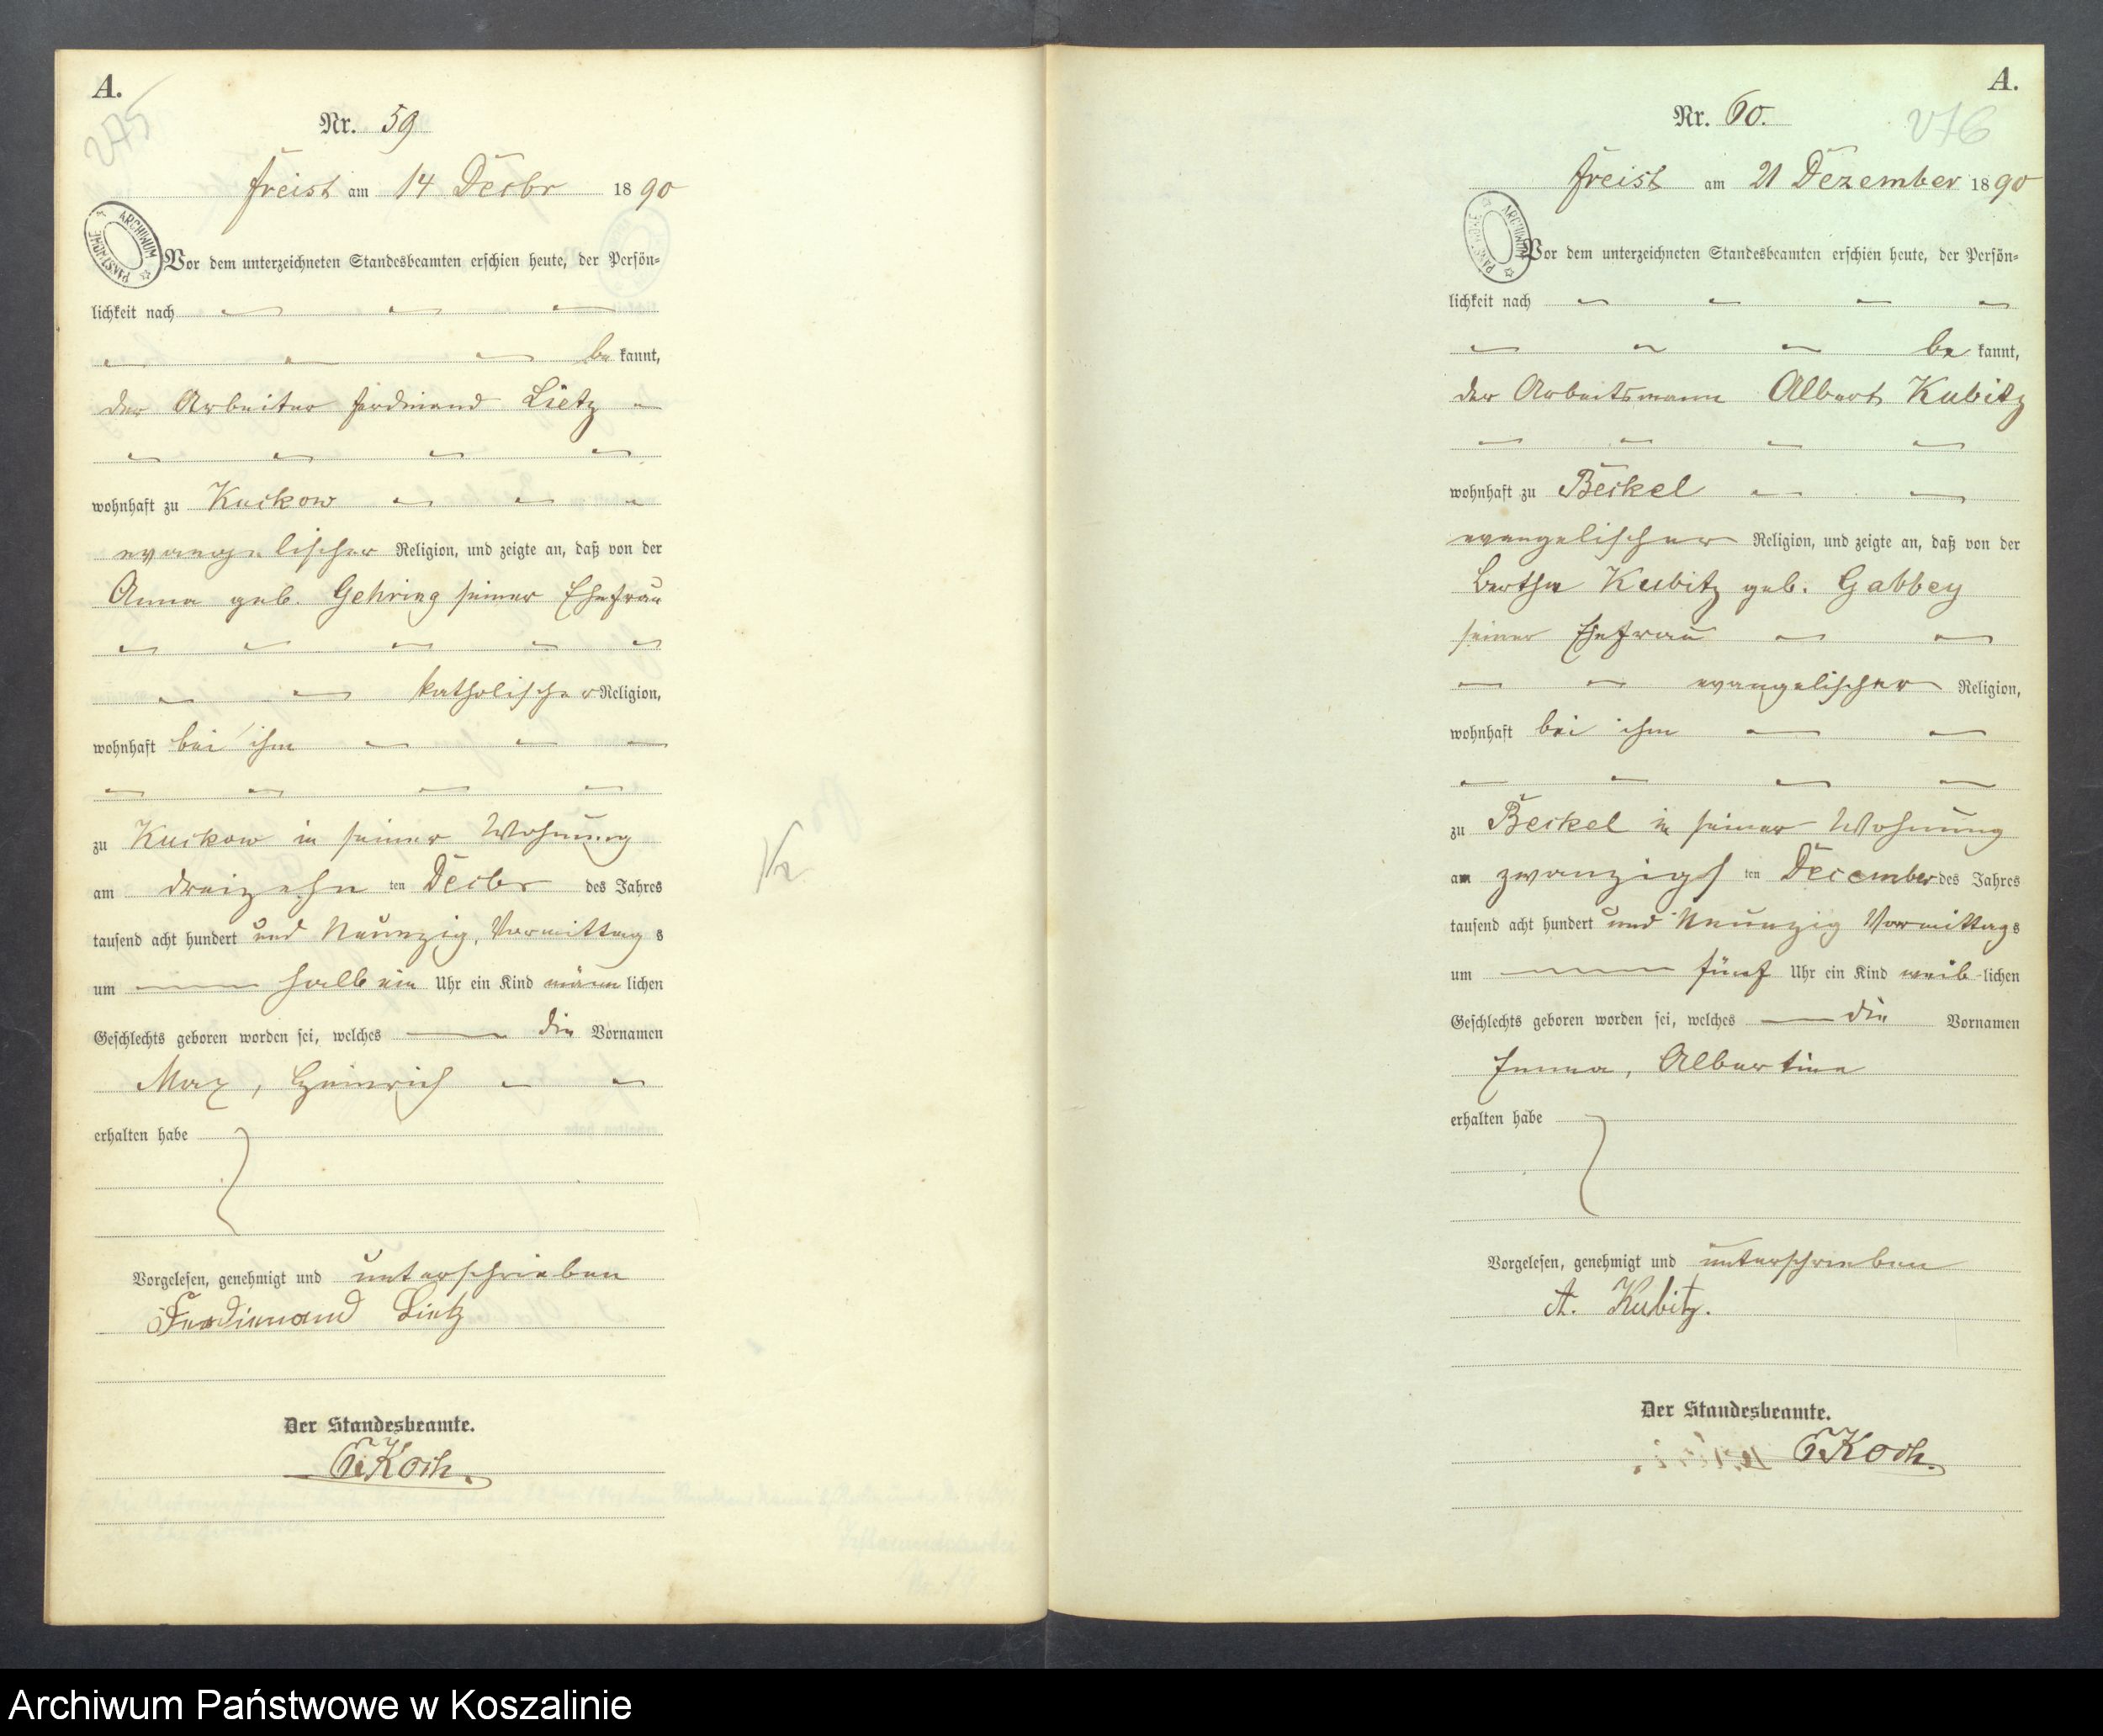 A.
275
Nr. 59
Freist am 14 Decbr 1890
ARCHIWUM PAŃSTWOWE
Vor dem unterzeichneten Standesbeamten erschien heute, der Persön=
lichkeit nach
be kannt,
der Arbeiter Ferdinand Lietz
wohnhaft zu Kuckow
evangelischer Religion, und zeigte an, daß von der
Anna geb. Gehring seiner Ehefrau
katholischer Religion,
wohnhaft bei ihm
zu Kuckow in seiner Wohnung
am dreizehn ten Decbr des Jahres
tausend acht hundert und Neunzig, Vormittag s
um halb ein Uhr ein Kind männ lichen
Geschlechts geboren worden sei, welches die Vornamen
Max, Heinrich
erhalten habe
Vorgelesen, genehmigt und unterschrieben
Ferdienand Lietz
Der Standesbeamte.
E. Koch.
A.
276
Nr. 60.
Freist am 21 Dezember 1890
ARCHIWUM PAŃSTWOWE
Vor dem unterzeichneten Standesbeamten erschien heute, der Persön=
lichkeit nach
be kannt,
der Arbeitsmann Albert Kubitz
wohnhaft zu Beckel
evangelischer Religion, und zeigte an, daß von der
Bertha Kubitz geb. Gabbey
seiner Ehefrau
evangelischer Religion,
wohnhaft bei ihm
zu Beckel in seiner Wohnung
am zwanzigs ten December des Jahres
tausend acht hundert und Neunzig Vormittags
um fünf Uhr ein Kind weib lichen
Geschlechts geboren worden sei, welches die Vornamen
Emma, Albertine
erhalten habe
Vorgelesen, genehmigt und unterschrieben
A. Kubitz.
Der Standesbeamte.
E. Koch.
Archiwum Państwowe w Koszalinie